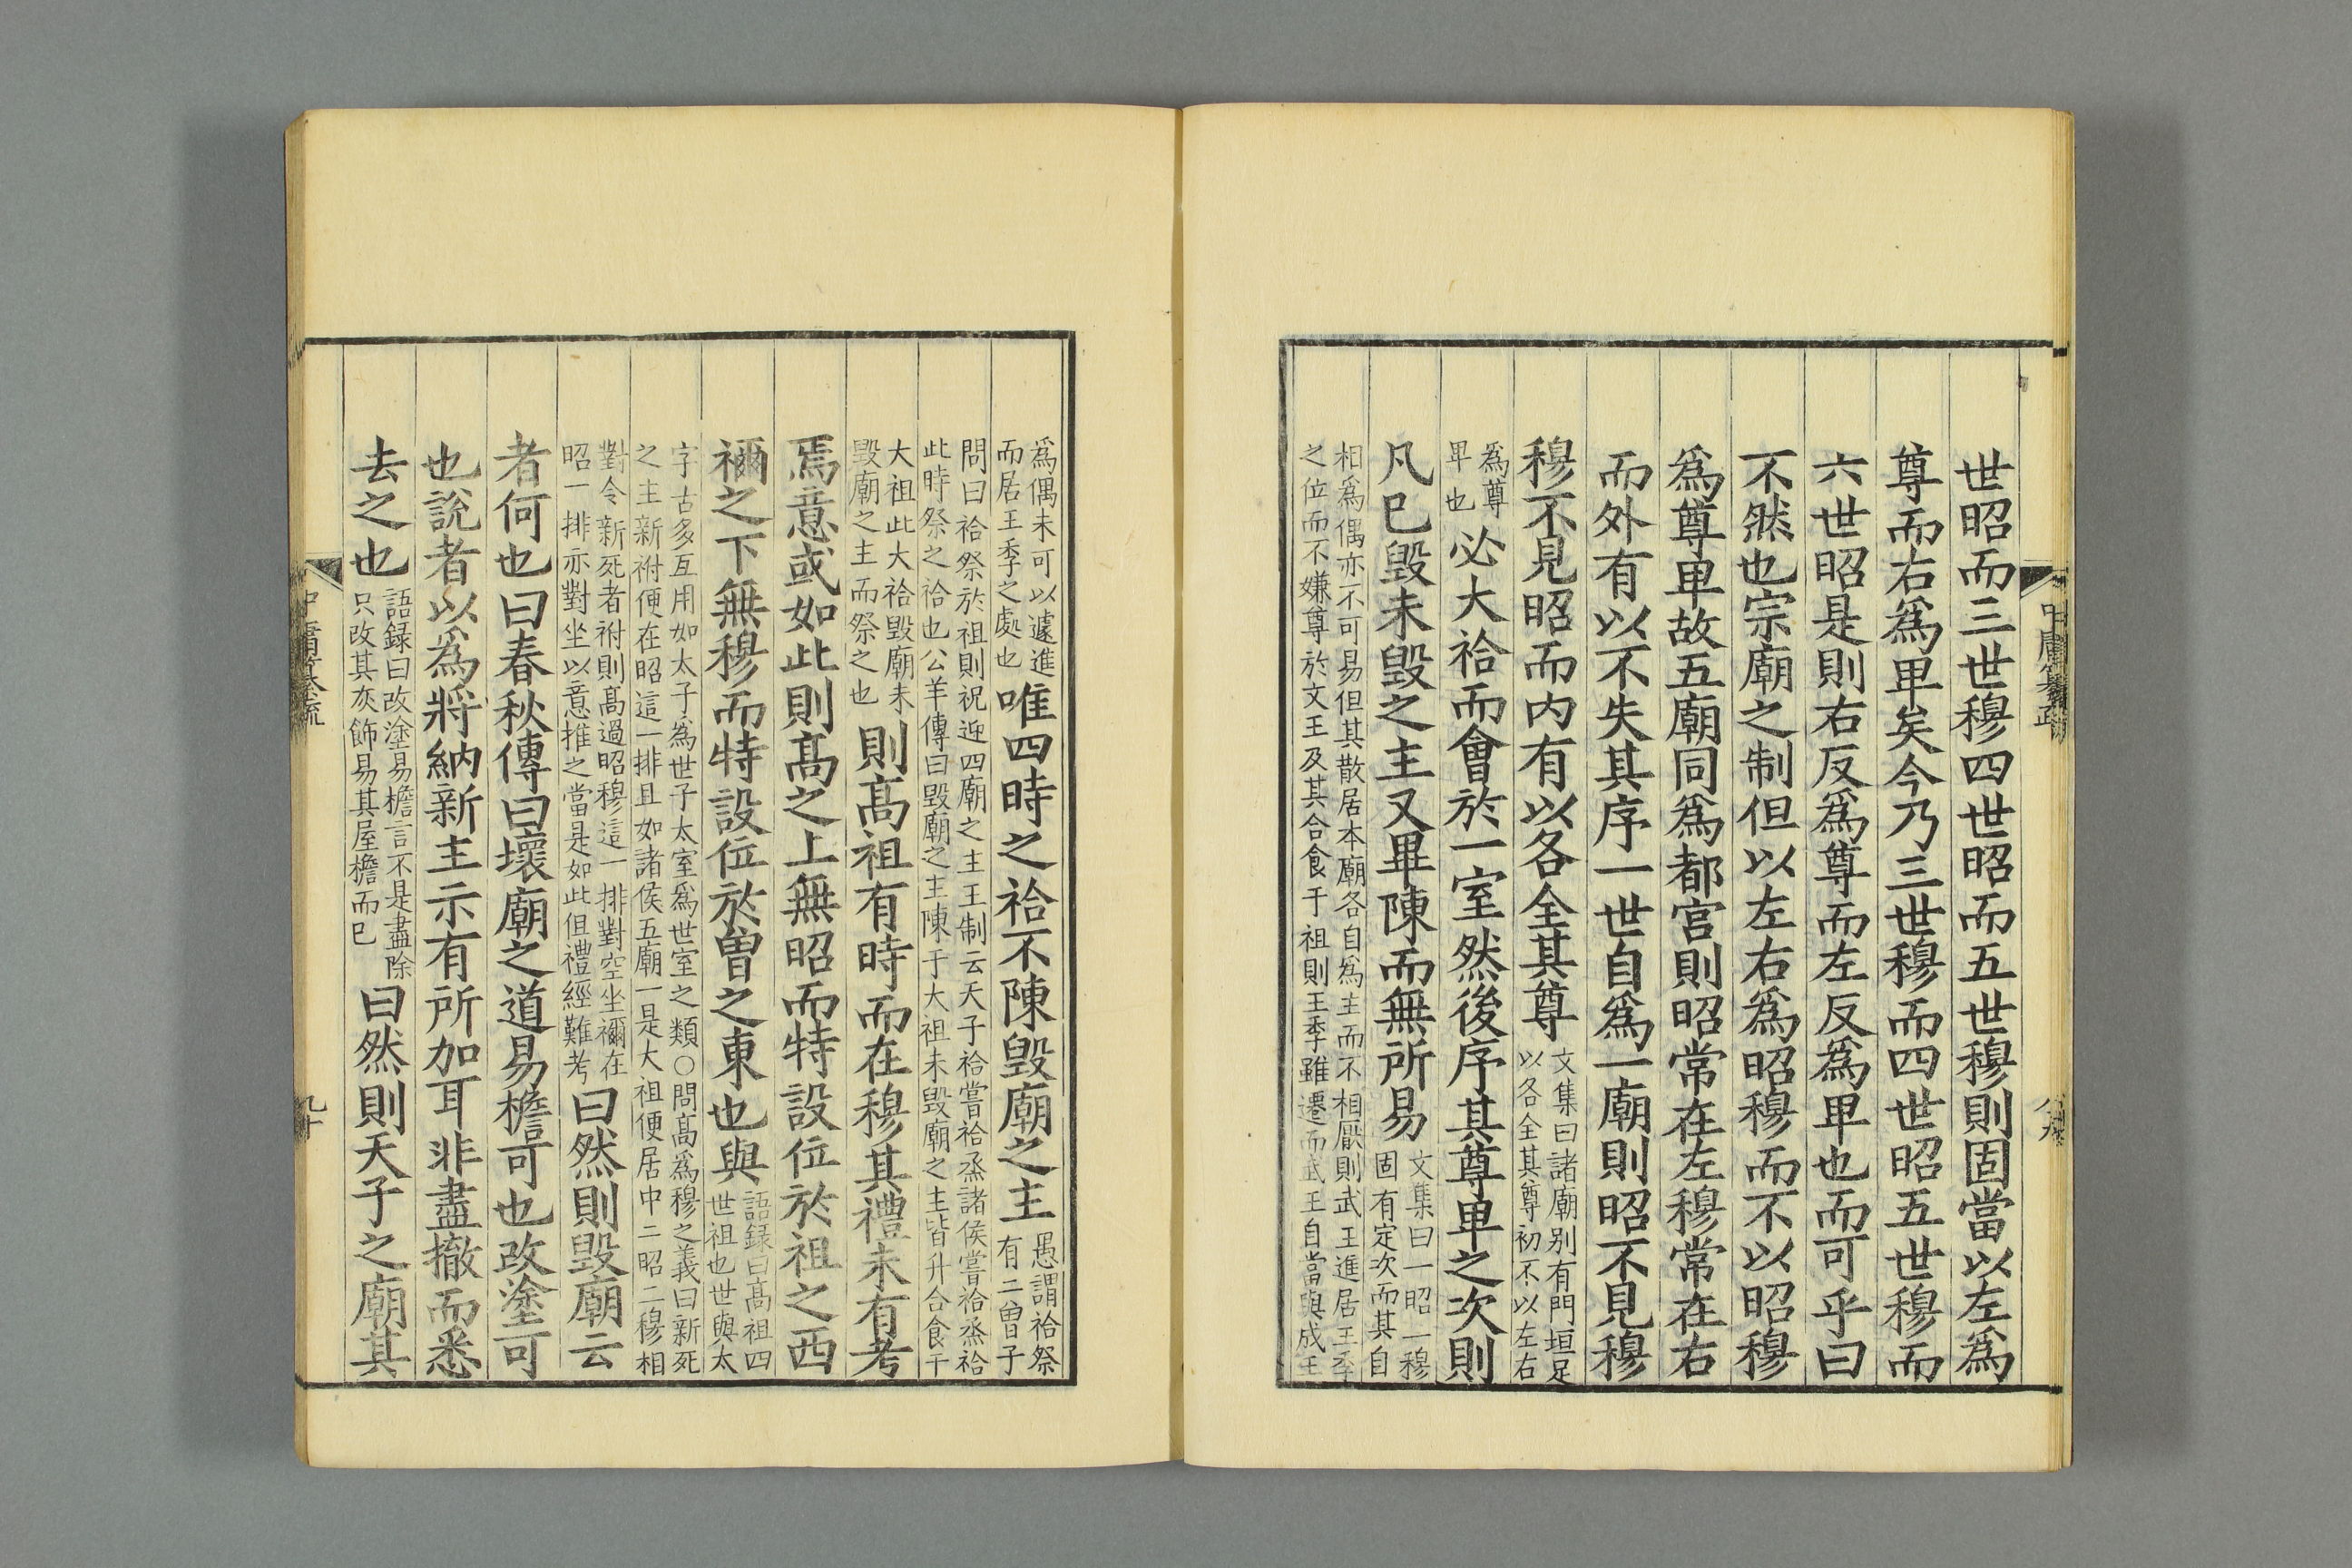 世昭而三世穆四世昭而五世穆則固當以左爲
尊而右爲卑矣今乃三世穆而四世昭五世穆而
六世昭是則右反爲尊而左反爲卑也而可乎曰
不然也宗廟之制但以左右爲昭穆而不以昭穆
爲尊卑故五廟同爲都宮則昭常在左穆常在右
而外有以不失其序一世自爲一廟則昭不見穆
穆不見昭而內有以各全其尊
文集曰諸廟别有門垣足
以各全其尊初不以左右
爲尊
卑也
必大祫而會於一室然後序其尊卑之次則
凡已毁未毁之主又畢陳而無所易
文集曰一昭一穆
固有定次而其自
相爲偶亦不可易但其散居本廟各自爲主而不相厭則武王進居王季
之位而不嫌尊於文王及其合食于祖則王季雖遷而武王自當與成王
爲偶未可以遽進
而居王季之處也
唯四時之祫不陳毁廟之主
愚謂祫祭
有二曽子
問曰祫祭於祖則祝迎四廟之主王制云天子祫嘗祫烝諸侯嘗祫烝祫
此時祭之祫也公羊傳曰毁廟之主陳于大祖未毁廟之主皆升合食于
大祖此大祫毁廟未
毁廟之主而祭之也
則髙祖有時而在穆其禮未有考
焉意或如此則髙之上無昭而特設位於祖之西
禰之下無穆而特設位於曽之東也與
語録曰髙祖四
世祖也世與太
字古多互用如太子爲世子太室爲世室之類○問髙爲穆之義曰新死
之主新祔便在昭這一排且如諸侯五廟一是大祖便居中二昭二穆相
對令新死者祔則髙過昭穆這一排對空坐禰在
昭一排亦對坐以意推之當是如此但禮經難考
曰然則毁廟云
者何也曰春秋傳曰壞廟之道易檐可也改塗可
也說者以爲將納新主示有所加耳非盡撤而悉
去之也
語録曰改塗易檐言不是盡除
只改其灰飾易其屋檐而已
曰然則天子之廟其
九十